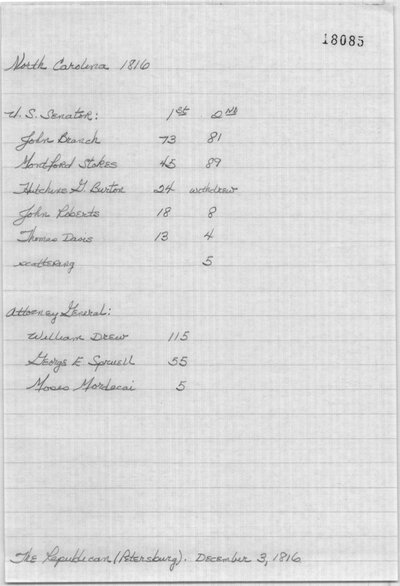 18085
North Carolina 1816
U.S. Senator: 1st 2nd
John Branch 73 81
Montford Stokes 45 89
Hutchins G. Burton 24 withdrew
John Roberts 18 8
Thomas Davis 13 4
scattering 5
Attorney General:
William Drew 115
George E Spruell 55
Moses Mordecai 5
The Republican (Petersburg). December 3, 1816